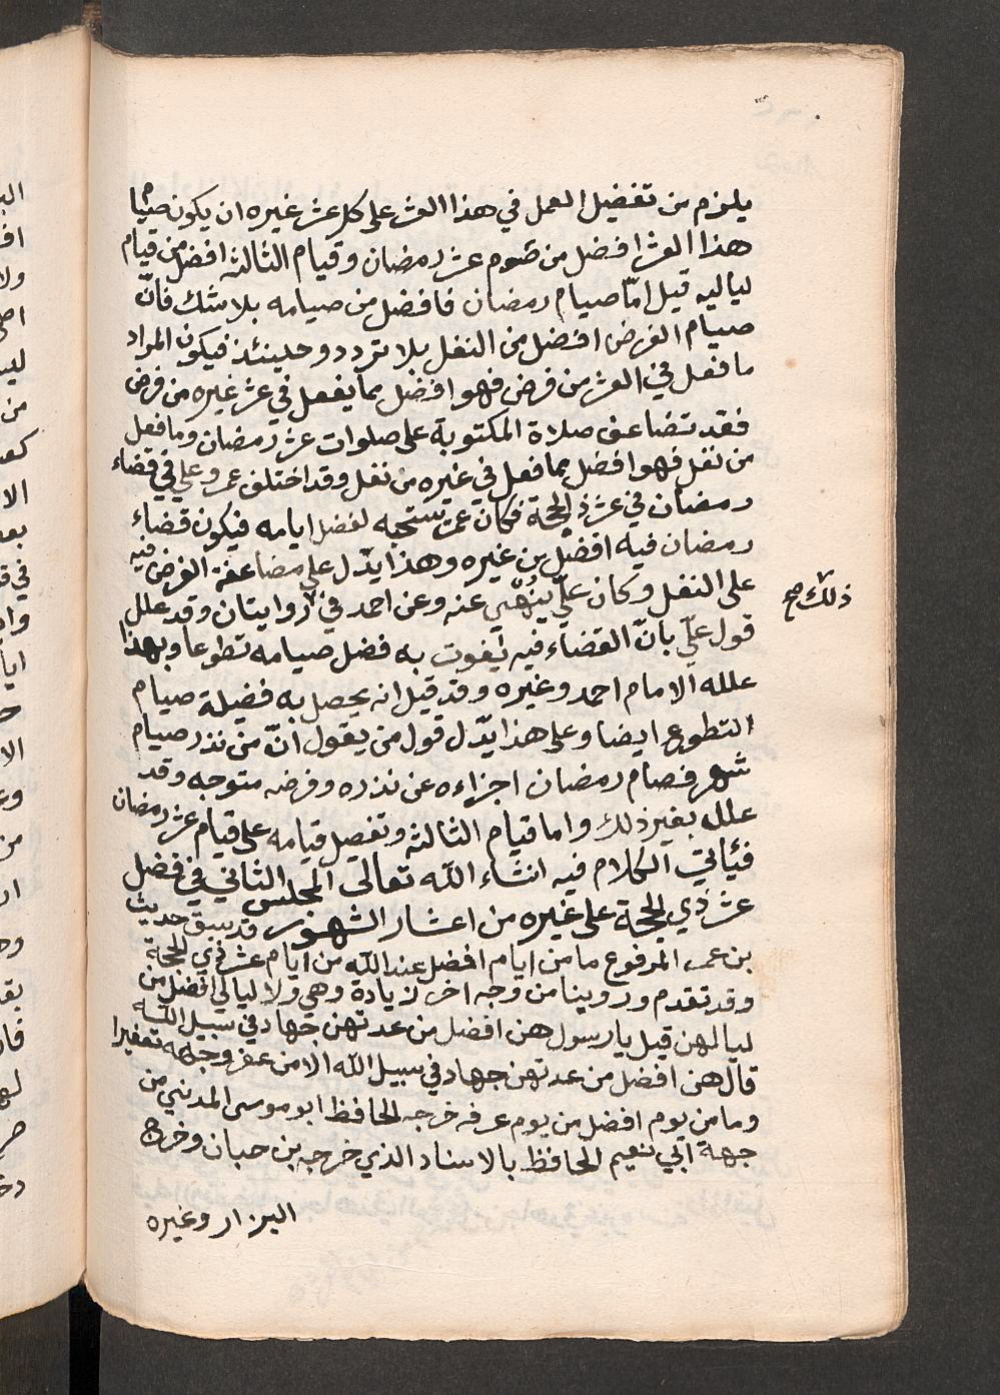 يلزم من تفضيل العمل في هذا العشر على كل عشر غيره ان يكون صيام
هذا العشر افضل من صوم عشر رمضان وقيام الثالثه افضل من قيام
لياليه قيل امّا صيام رمضان فافضل من صيامه بلا شك فانّ
صيام الفرض افضل من النفل بلا تردد وحينئذ فيكون المراد
ما فعل في العشر من فرض فهو افضل مما يفعل في عشر غيره من فرض
فقد تضاعف صلاة المكتوبة على صلوات عشر رمضان وما فعل
من نفل فهو افضل مما فعل في غيره من نفل وقد اختلف عمر وعلي في قضاء
رمضان في عشر ذي الحجة فكان عمر يستحبه لفضل ايامه فيكون قضاء
رمضان فيه افضل من غيره وهذا يدّل على مضاعفة الفرض فيه
على النفل وكان عليّ يَنْهَي عنه وعن احمد في روايتان وقد علل
ذلك صح
قول عليّ بانّ القضاء فيه يَفوت به فضل صيامه تطوعا وبهذا
علله الامام احمد وغيره وقد قيل انه يحصل به فضيلة صيام
التطوع ايضا وعلى هذا يدّل قول من يقول انّ من نذر صيام
شهر فصام رمضان اجزاءه عن نذره وفرضه متوجه وقد
علل بغير ذلك واما قيام الثالثه وتفصيل قيامه على قيام عشر رمضان
فيئاتي الكلام فيه انشاء الله تعالى المجلس الثاني في فضل
عشر ذي الحجة على غيره من اعشار الشهور قد سبق حديث
بن عمر المرفوع ما من ايام افضل عند الله من ايام عشر ذي الحجة
وقد تقدم وروينا من وجه اخر لزيادة وهي ولا ليالي افضل من
ليالهن قيل يا رسول هن افضل من عدتهن جهاد في سبيل الله
قال هن افضل من عدتهن جهاد في سبيل الله الا من عفر وجهه تعفيرا
وما من يوم افضل من يوم عرفه خرجه الحافظ ابو موسى المدني من
جهة ابي نعيم الحافظ بالاسناد الذي خرجه بن حبان وخرج
البزار وغيره